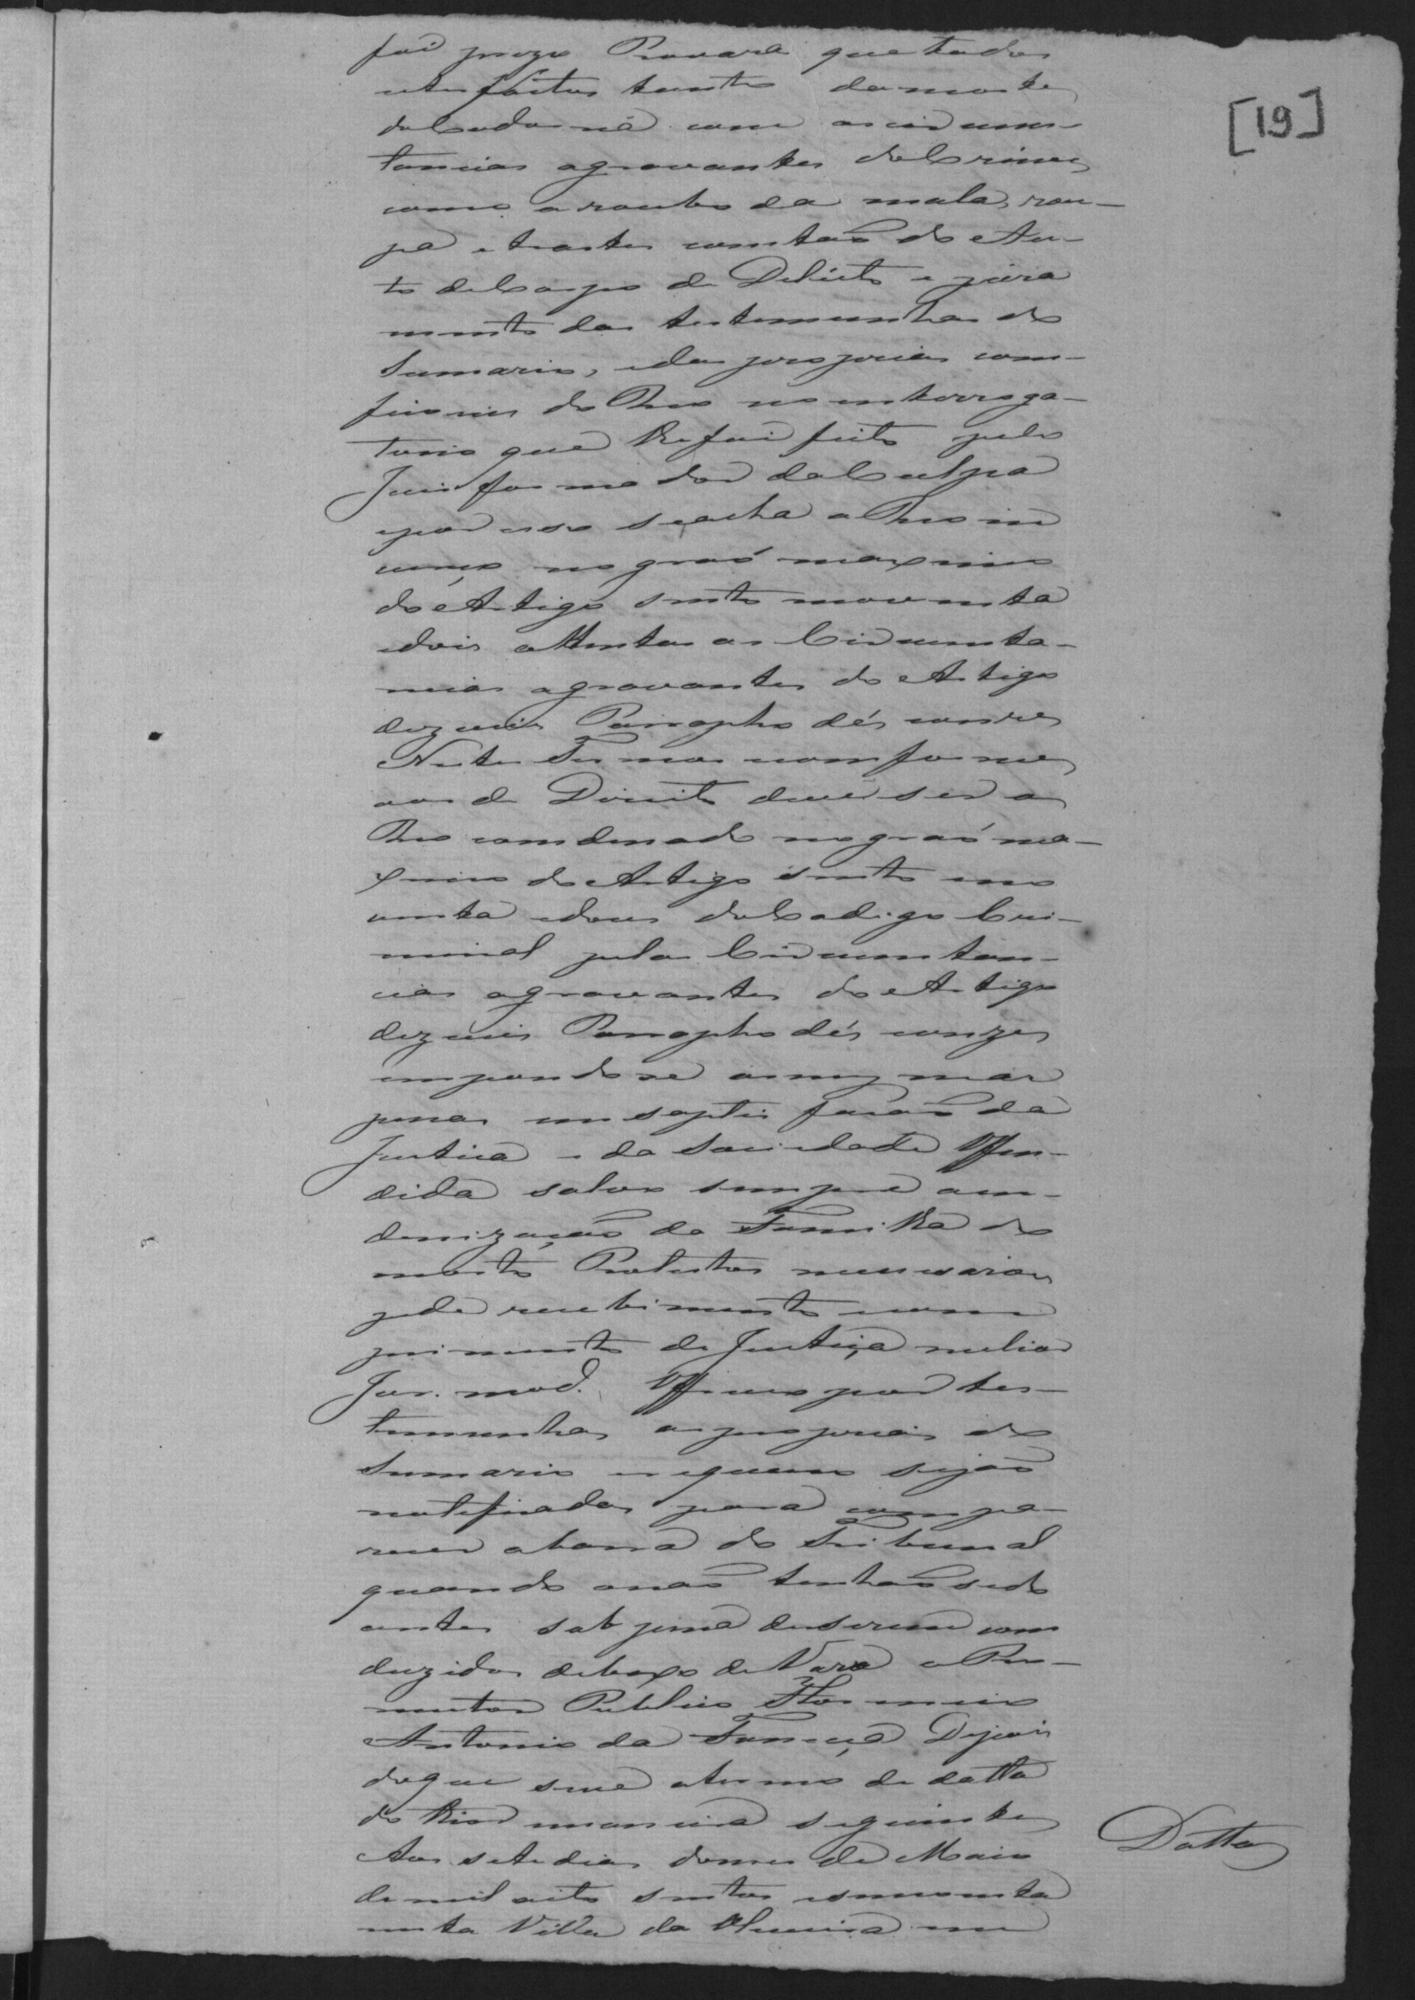 foi prezo Provará que todos
estes factos tanto da morte
do Cadorná como as circuns-
tancias agravantes do Crime,
como a roubo da mala, rou-
pa e trastes constaõ do Au-
to de Corpo de Delicto e jura
mento das testemunhas do
Sumario, e das proprias com-
fiçoens do Reo no enterroga-
torio que lhe foi feito pelo
Juis formador da Culpa
e por isso se acha o Reo in
curço no graó maximo
do Artigo sento noventa
e dois attentas as Circunsta-
ncias agravantes do Artigo
dezeseis Paragapho dés e onze
Nestes Termos comforme
aos de Direito deve ser o
Reo comdenado no graó ma-
ximo do Artigo sento no
venta e dous do Codigo Cri-
minal pelas Circunstan-
cias agravantes do Artigo
dezeseis Paragapho dés e onze
impondo se as mesmas
penas em saptis façaõ da
Justica e da Sociedade Offen-
dida salvo sempre a in-
denizaçaõ da Familha do
morto Protestos necesarios
pede recebimento e com
primento de Justiça melior
Jur. mod. Offereço por tes-
temunhas as proprias do
Sumario e requeiro sejaõ
noteficadas para compa-
recer a barra do Tribunal
quando o naõ tenhaõ sido
antes sob pena de serem com
duzidos debaxo de Vara o Pro-
motor Publico Florencio
Antonio da Fonceça Depois
do que se via o termo de datta
do theor maneira seguinte
Aos sete dias do mes de Maio
de mil oito sentos e sincoenta
nesta Villa da Oliveira em
Datta
[19]